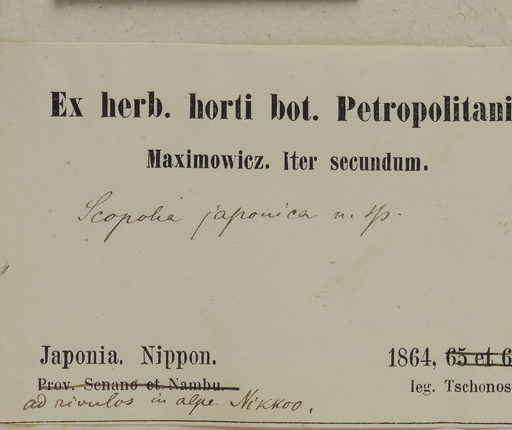 Ex herb. horti bot. Petropolitani
Maximowicz. Iter secundum.
Scopolia japonica n. sp.
Japonia. Nippon. 1864, 65 et 6
Prov. Senano et Nambu. leg. Tschonos
ad rivulos in alpe Nikkoo.